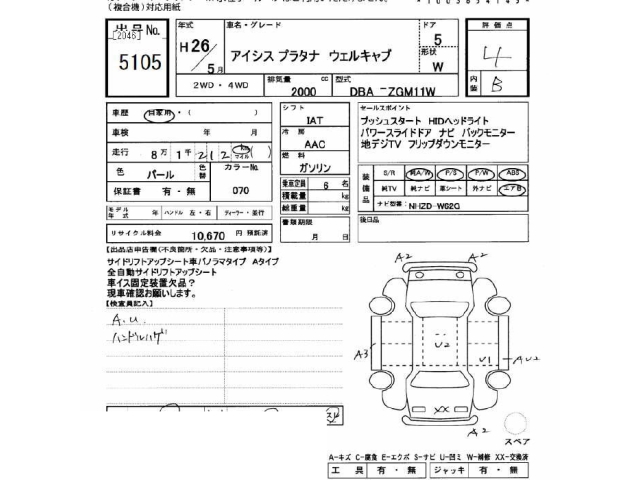 (複合機)対応用紙
出品No.
[2046]
5105
年式
H26/5月
車名・グレード
アイシス プラタナ ウェルキャブ
ドア
5
形状
W
2WD・4WD
排気量
2000 cc
型式
DBA ーZGM11W
評価点
4
内装
B
車歴 自家用・( )
車検 年 月
走行 8万1千212 km マイル ( )
色 パール
色替
カラーNo. 070
保証書 有・無
モデル年式 年 ハンドル 左・右 ディーラー・並行
リサイクル料金 10,670 円 預託済
シフト
IAT
冷房
AAC
燃料
ガソリン
乗車定員 6 名
積載量 kg
総重量 kg
書類期限
月 日
セールスポイント
プッシュスタート HIDヘッドライト
パワースライドドア ナビ バックモニター
地デジTV フリップダウンモニター
装備品
S/R 純A/W P/S P/W ABS
純TV 純ナビ 革シート 外ナビ エアB
ナビ型番: NHZD-W62G
後日品
【出品店申告欄(不良箇所・欠品・注意事項等)】
サイドリフトアップシート車パノラマタイプ Aタイプ
全自動サイドリフトアップシート
車イス固定装置欠品?
現車確認お願いします。
【検査員記入】
A.U.
ハンドルハゲ
A2
A2
A3
U2
U1
AU2
XX
A2
スペア
A-キズ C-腐食 E-エクボ S-サビ U-凹ミ W-補修 XX-交換済
工具 有・無 ジャッキ 有・無